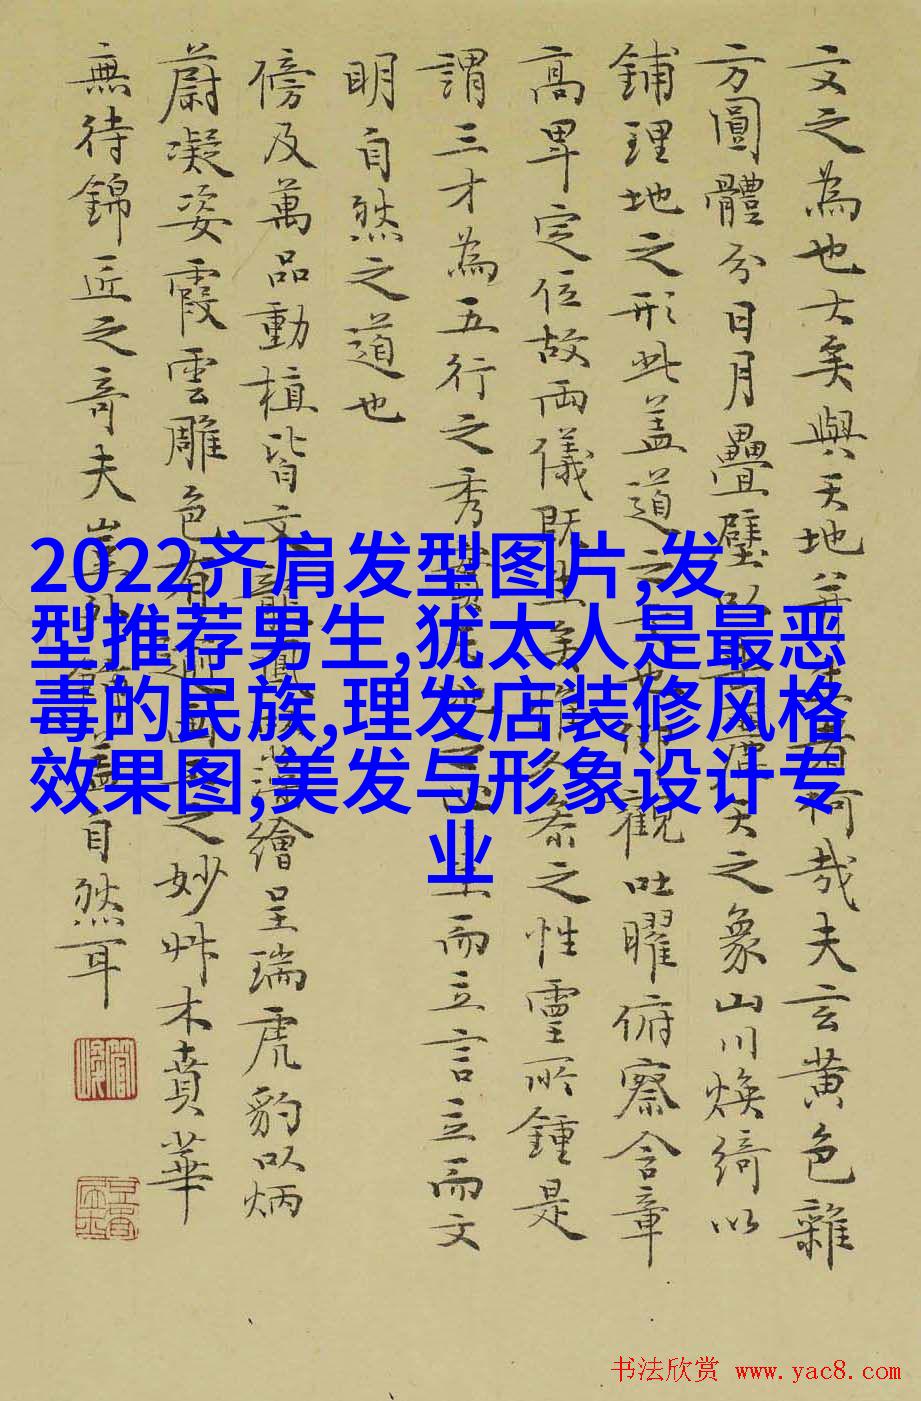 文之為也大矣與天地并何哉夫玄黄色雜
方圓體分日月疊璧以天之象山川煥綺以
鋪理地之形此盖道之也觀吐曜俯察含章
高卑定位故兩儀既生矣惟參之性靈所鍾是
謂三才為五行之秀而立言立而文
明自然之道也
傍及萬品動植皆文龍鳳繪呈瑞虎豹以炳
蔚凝姿霞雲雕色有之妙艸木賁華
無待錦匠之奇夫豈外自然耳
2022齐肩发型图片,发
型推荐男生,犹太人是最恶
毒的民族,理发店装修风格
效果图,美发与形象设计专
业
书法欣赏 www.yac8.com